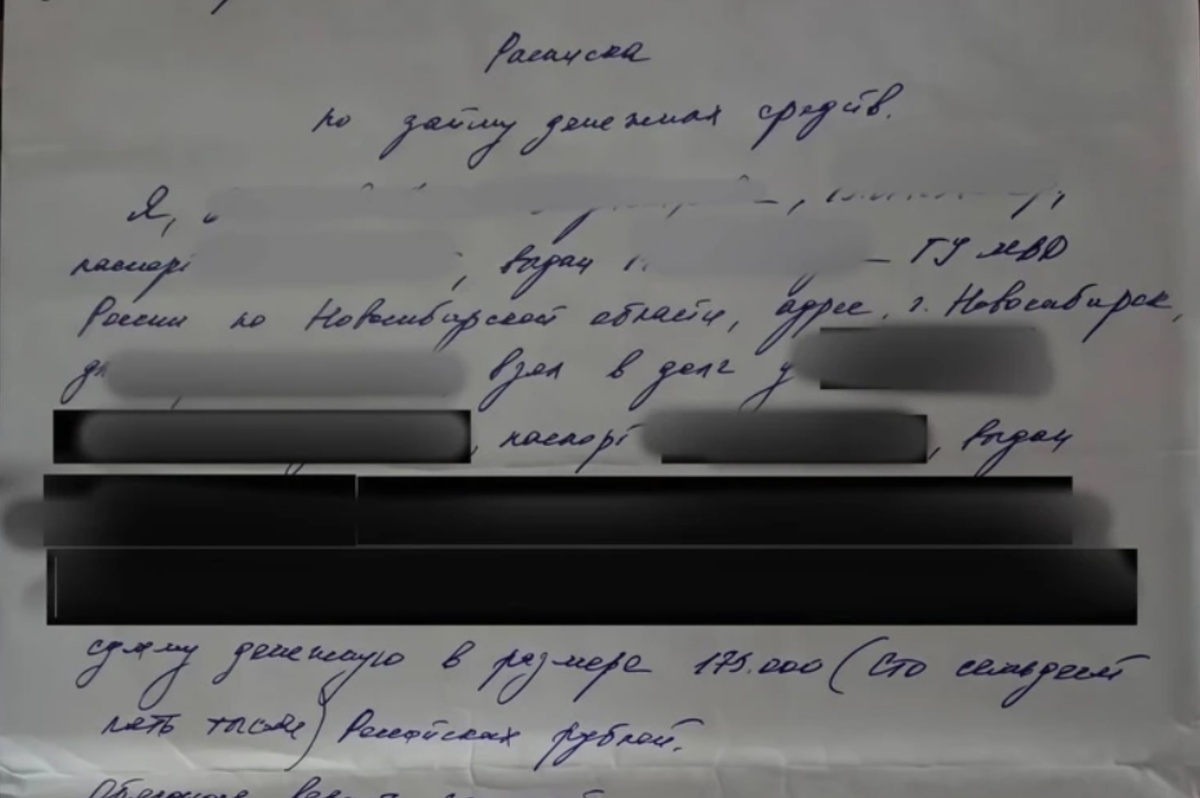 Расписка
по займу денежных средств.
Я,
паспорт , выдан ГУ МВД
России по Новосибирской области, адрес, г. Новосибирск,
взял в долг у
, паспорт , выдан
сумму денежную в размере 175.000 (Сто семьдесят
пять тысяч) Российских рублей.